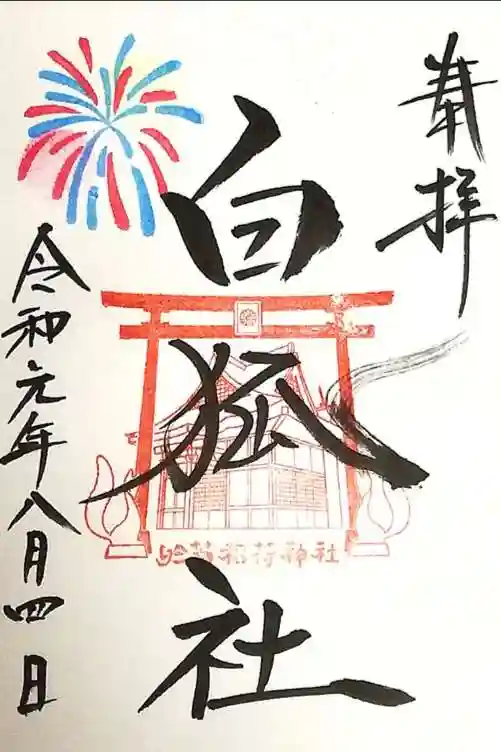 奉拝
白狐社
於菊稲荷神社
令和元年八月四日